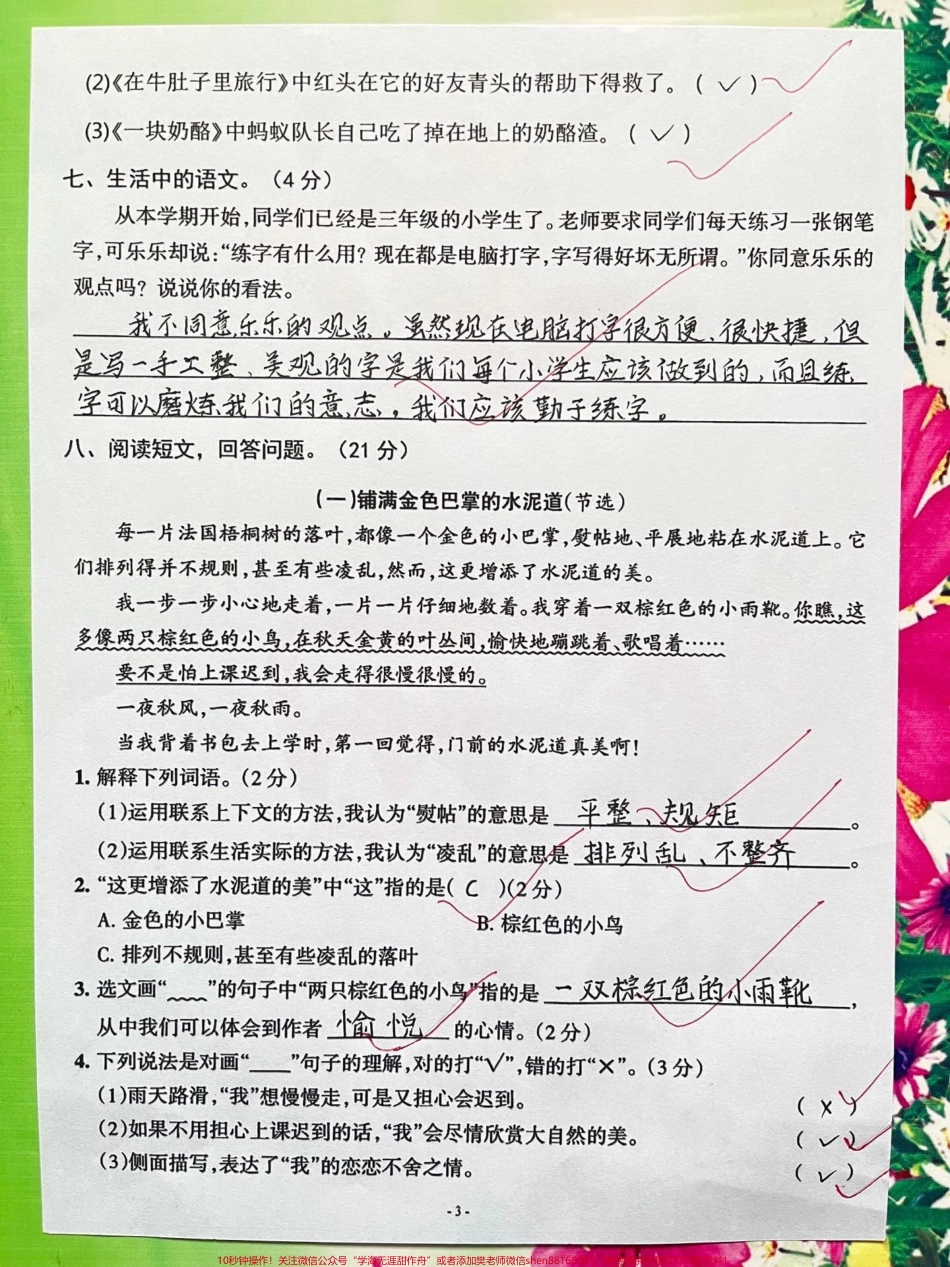 (2)《在牛肚子里旅行》中红头在它的好友青头的帮助下得救了。( ✓ )
(3)《一块奶酪》中蚂蚁队长自己吃了掉在地上的奶酪渣。( ✓ )
七、生活中的语文。(4分)
从本学期开始,同学们已经是三年级的小学生了。老师要求同学们每天练习一张钢笔
字,可乐乐却说:“练字有什么用?现在都是电脑打字,字写得好坏无所谓。”你同意乐乐的
观点吗?说说你的看法。
我不同意乐乐的观点。虽然现在电脑打字很方便、很快捷,但
是写一手工整、美观的字是我们每个小学生应该做到的,而且练
字可以磨炼我们的意志,我们应该勤于练字。
八、阅读短文,回答问题。(21分)
(一)铺满金色巴掌的水泥道(节选)
每一片法国梧桐树的落叶,都像一个金色的小巴掌,熨帖地、平展地粘在水泥道上。它
们排列得并不规则,甚至有些凌乱,然而,这更增添了水泥道的美。
我一步一步小心地走着,一片一片仔细地数着。我穿着一双棕红色的小雨靴。你瞧,这
多像两只棕红色的小鸟,在秋天金黄的叶丛间,愉快地蹦跳着、歌唱着……
要不是怕上课迟到,我会走得很慢很慢的。
一夜秋风,一夜秋雨。
当我背着书包去上学时,第一回觉得,门前的水泥道真美啊!
1. 解释下列词语。(2分)
(1)运用联系上下文的方法,我认为“熨帖”的意思是 平整、规矩 。
(2)运用联系生活实际的方法,我认为“凌乱”的意思是 排列乱、不整齐 。
2. “这更增添了水泥道的美”中“这”指的是( C )(2分)
A. 金色的小巴掌 B. 棕红色的小鸟
C. 排列不规则,甚至有些凌乱的落叶
3. 选文画“﹏﹏”的句子中“两只棕红色的小鸟”指的是 一双棕红色的小雨靴 ,
从中我们可以体会到作者 愉悦 的心情。(2分)
4. 下列说法是对画“___”句子的理解,对的打“√”,错的打“×”。(3分)
(1)雨天路滑,“我”想慢慢走,可是又担心会迟到。 ( × )
(2)如果不用担心上课迟到的话,“我”会尽情欣赏大自然的美。 ( ✓ )
(3)侧面描写,表达了“我”的恋恋不舍之情。 ( ✓ )
- 3 -
10秒钟操作!关注微信公众号“学海无涯甜作舟”或者添加樊老师微信shen8816